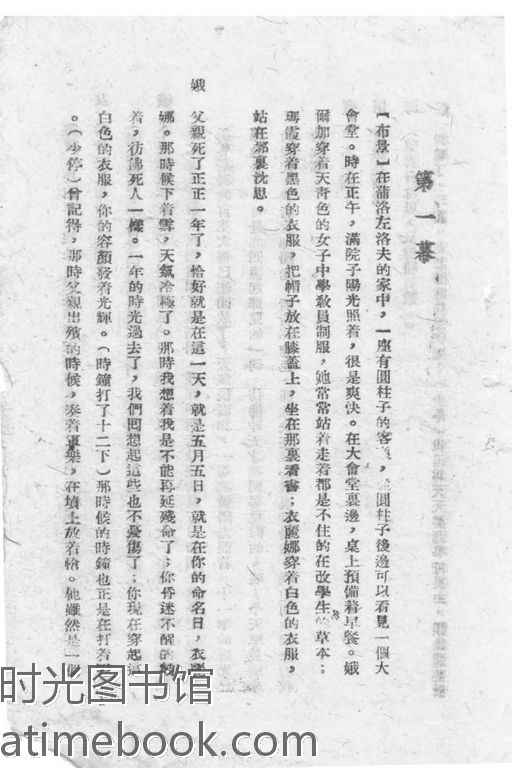 第一幕
【布景】在蒲洛左洛夫的家中，一座有圓柱子的客，圓柱子後邊可以看見一個大
會堂。時在正午，滿院子陽光照着，很是爽快。在大會堂裏邊，桌上預備着早餐。娥
爾加穿着天青色的女子中學教員制服，她常常站着走着都是不住的在改學生的草本；
瑪霞穿着黑色的衣服，把帽子放在膝蓋上，坐在那裏看書；衣麗娜穿着白色的衣服，
站在那裏沈思。
娥
父親死了正正一年了，恰好就是在這一天，就是五月五日，就是在你的命名日，衣麗
娜。那時候下着雪，天氣冷極了。那時我想着我是不能再延殘命了；你昏迷不醒的躺
着，彷彿死人一樣。一年的時光過去了，我們回想起這些也不憂傷了；你現在穿起
白色的衣服，你的容顏發着光輝。（時鐘打了十二下）那時候的時鐘也正是在打着
。（少停）曾記得，那時父親出殯的時候，奏着軍樂，在墳上放着槍。他雖然是一個
时光图书馆
atimebook.com